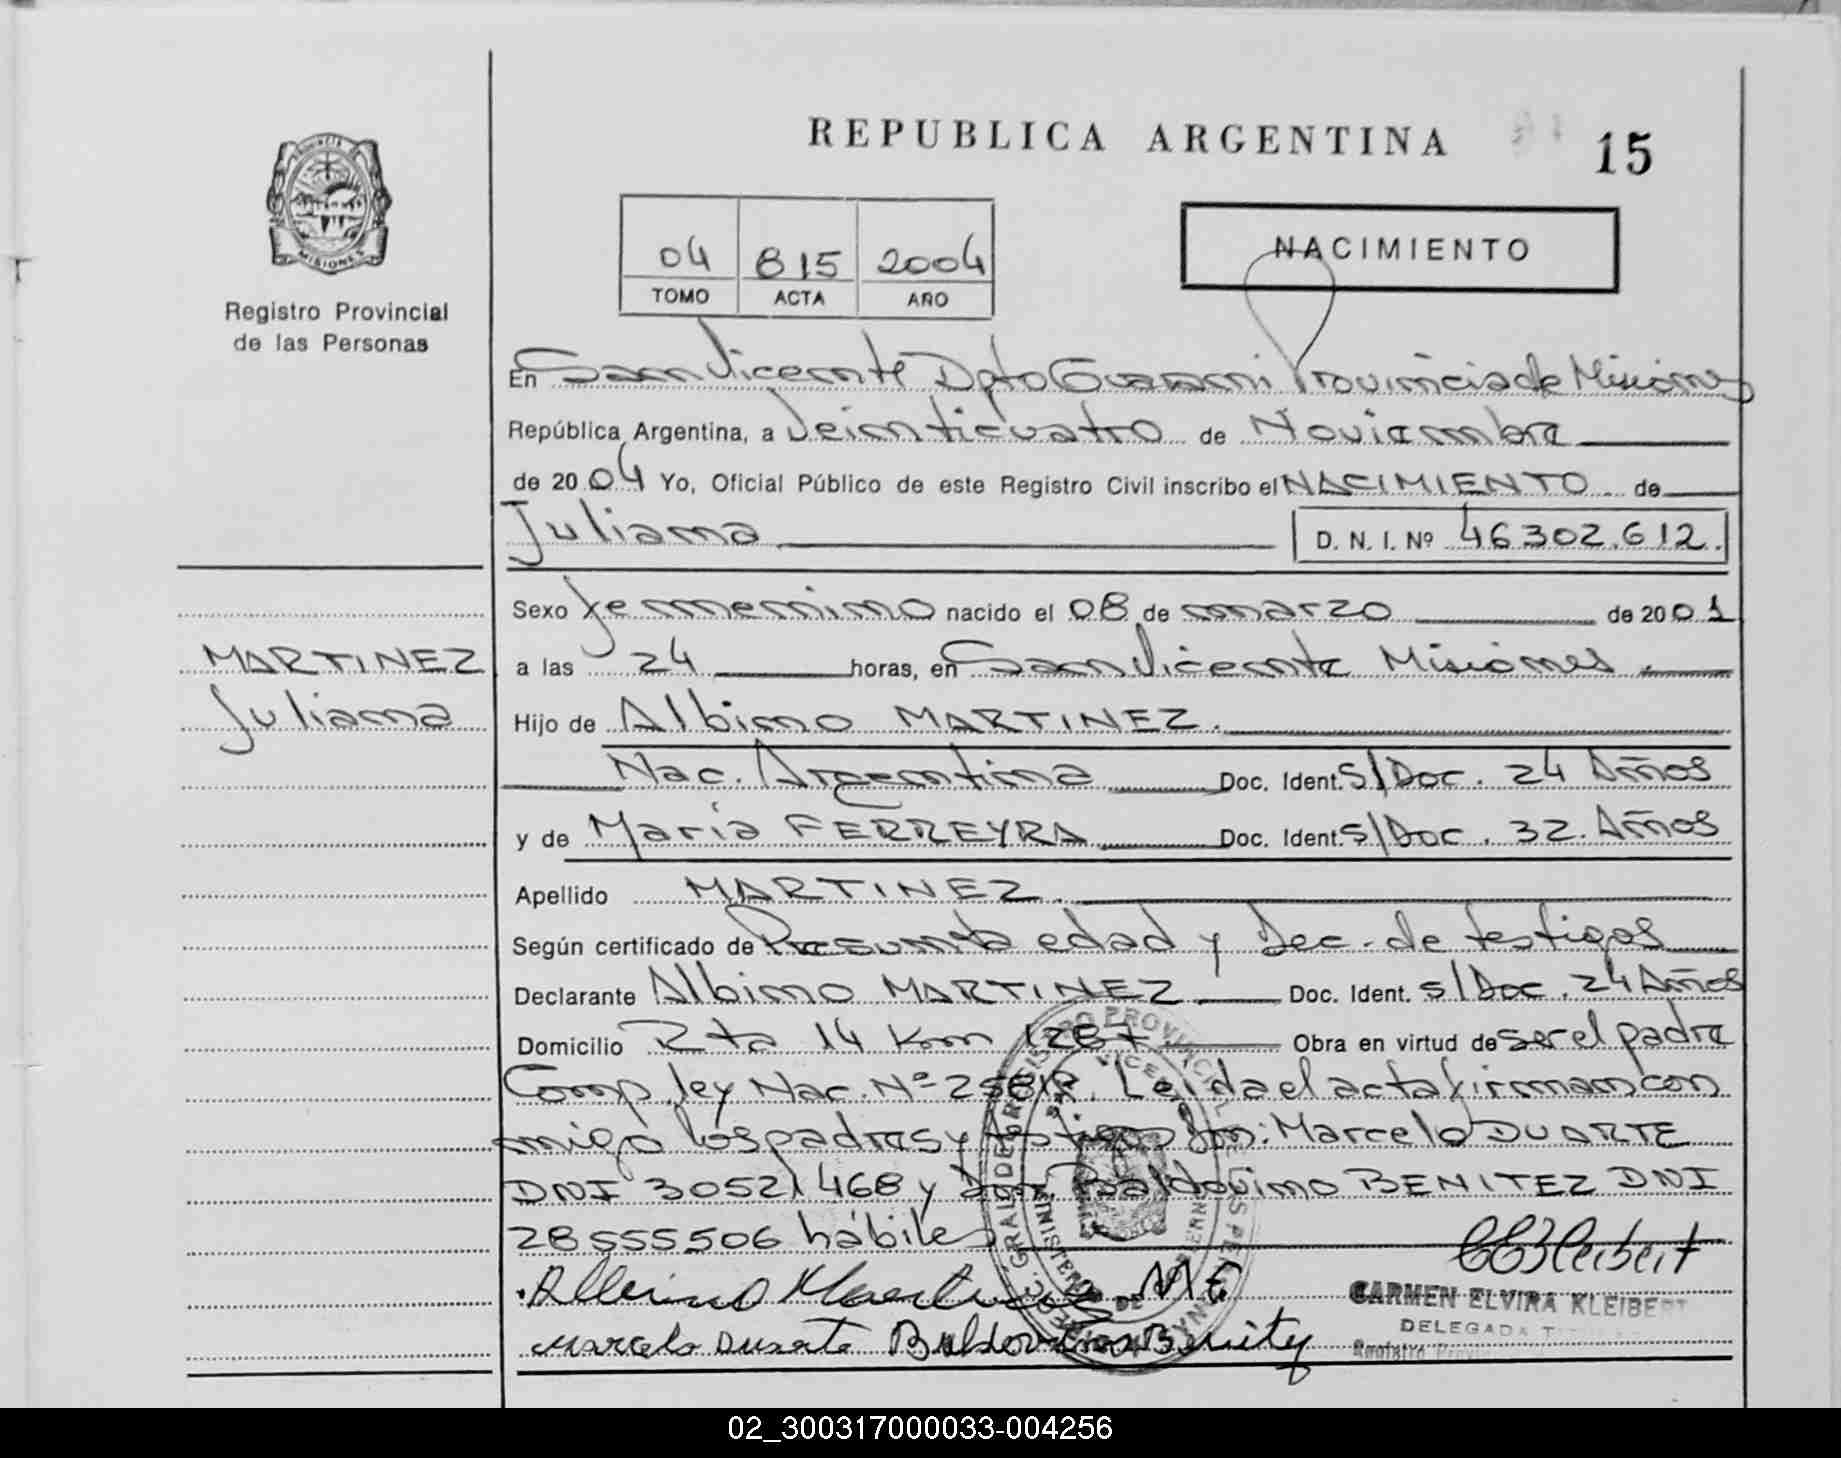 REPUBLICA ARGENTINA
15
PROVINCIA DE MISIONES
Registro Provincial
de las Personas
04 815 2004
TOMO ACTA AÑO
NACIMIENTO
En San Vicente Dpto Guarani Provincia de Misiones
República Argentina, a Veinticuatro de Noviembre
de 2004 Yo, Oficial Público de este Registro Civil inscribo el NACIMIENTO de
Juliana D. N. I. Nº 46302.612.
Sexo femenino nacido el 08 de marzo de 2001
MARTINEZ
Juliana
a las 24 horas, en San Vicente Misiones
Hijo de Albino MARTINEZ.
Nac. Argentina Doc. Ident. S/Doc. 24 Años
y de Maria FERREYRA Doc. Ident. S/Doc. 32. Años
Apellido MARTINEZ
Según certificado de Presunta edad y Dec. de testigos
Declarante Albino MARTINEZ Doc. Ident. S/Doc. 24 Años
Domicilio Rta 14 Km 1287 Obra en virtud de ser el padre
Comp. ley Nac. Nº Leida el acta firman con
migo los padres y testigos Don: Marcelo DUARTE
DNI 30521468 y Don Baldovino BENITEZ DNI
28555506 hábiles
Albino Martinez M F
CEKleibert
CARMEN ELVIRA KLEIBERT
DELEGADA
Registro
Marcelo Duarte Baldovino Benitez
02_300317000033-004256